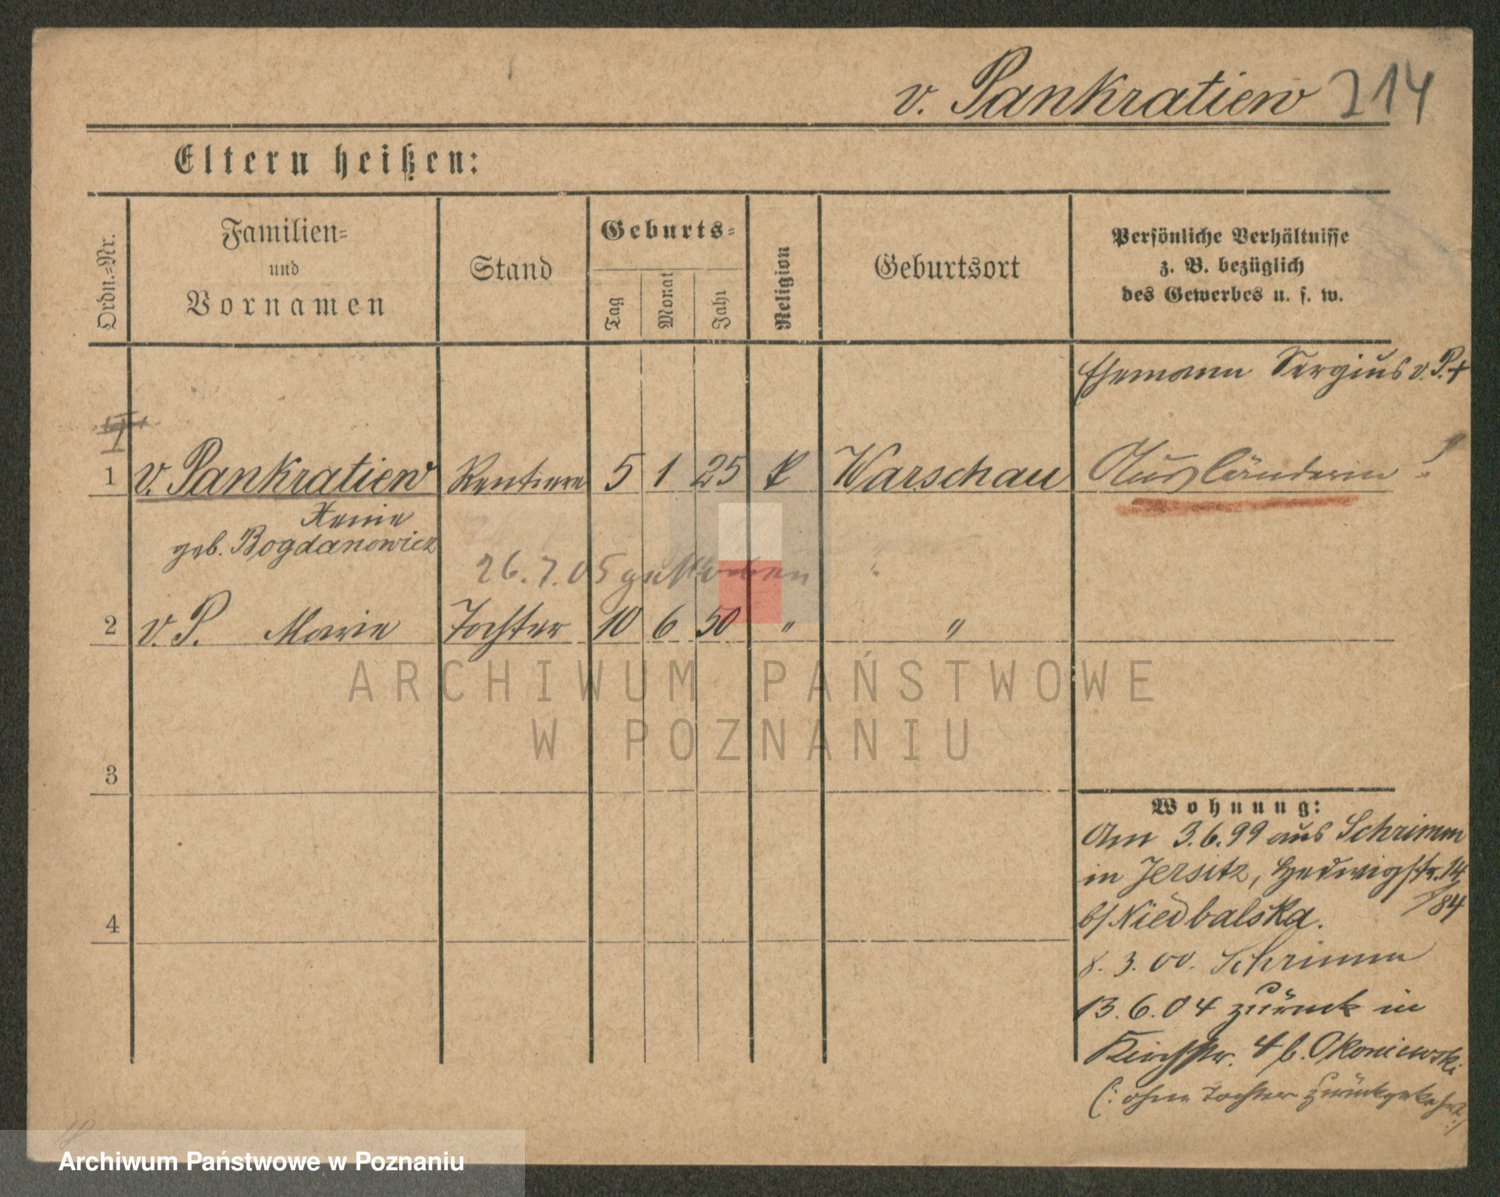 v. Pankratiew 214
Eltern heißen:
Ordn.-Nr.
Familien-
und
Vornamen
Stand
Geburts-
Tag
Monat
Jahr
Religion
Geburtsort
Persönliche Verhältnisse
z. B. bezüglich
des Gewerbes u. s. w.
Ehemann Sergius v. P. +
I
1 v. Pankratiew Rentiere 5 1 25 k Warschau Ausländerin !
Xenie
geb. Bogdanowicz
26.7.05 gestorben
2 v. P. Marie Tochter 10 6 50 " "
3
4
Wohnung:
Am 3.6.99 aus Schrimm
in Jersitz, Hedwigstr. 14
/84
b/ Niedbalska.
8. 3. 00. Schrimm
13.6.04 zurück in
Kirchstr. 4 b. Okoniewski
(: ohne Tochter zurückgekehrt :)
ARCHIWUM PAŃSTWOWE
W POZNANIU
Archiwum Państwowe w Poznaniu